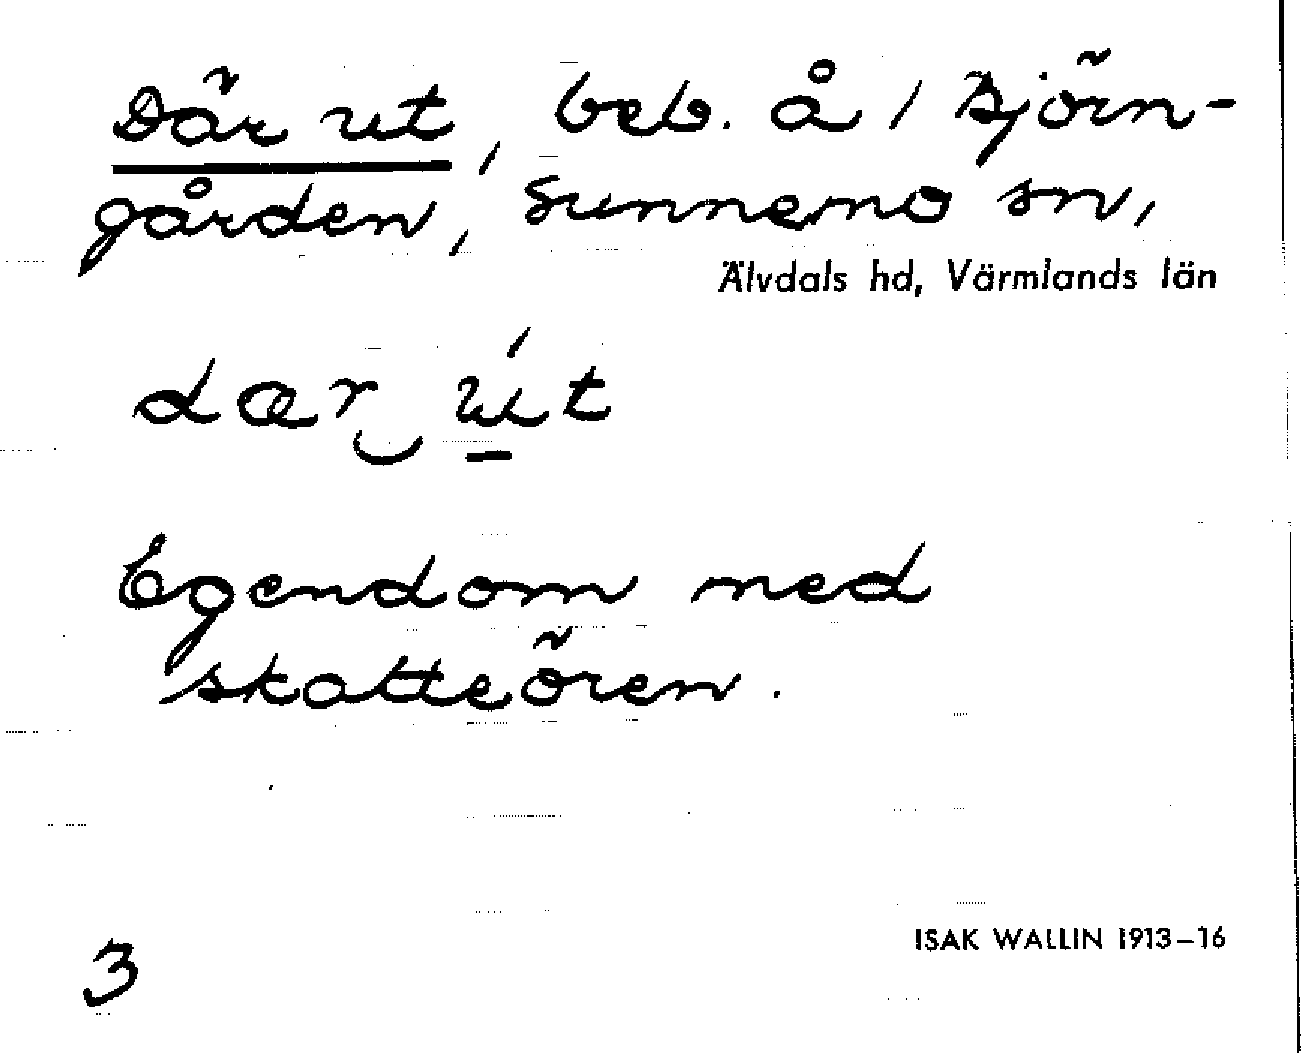 Där ut, beb. å / Björn-
gården, Sunnemo sn,
Älvdals hd, Värmlands län
dær‿ú̱t
Egendom med
skatteören.
3
ISAK WALLIN 1913–16